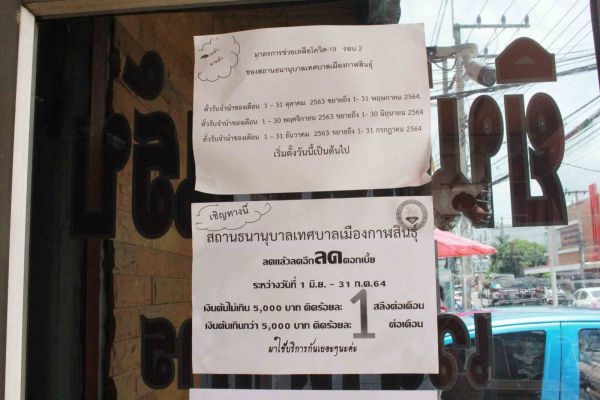 มาแล้ว
มาตรการช่วยเหลือโควิด-19 รอบ 2
ของสถานธนานุบาลเทศบาลเมืองกาฬสินธุ์
ตั๋วรับจำนำของเดือน 1 - 31 ตุลาคม 2563 ขยายถึง 1- 31 พฤษภาคม 2564
ตั๋วรับจำนำของเดือน 1 - 30 พฤศจิกายน 2563 ขยายถึง 1- 30 มิถุนายน 2564
ตั๋วรับจำนำของเดือน 1 - 31 ธันวาคม 2563 ขยายถึง 1- 31 กรกฎาคม 2564
เริ่มตั้งวันนี้เป็นต้นไป
เชิญทางนี้
สถานธนานุบาลเทศบาลเมืองกาฬสินธุ์
ลดแล้วลดอีกลดดอกเบี้ย
ระหว่างวันที่ 1 มิ.ย. - 31 ก.ค.64
เงินต้นไม่เกิน 5,000 บาท คิดร้อยละ 1 สลึงต่อเดือน
เงินต้นเกินกว่า 5,000 บาท คิดร้อยละ 1 ต่อเดือน
มาใช้บริการกันเยอะๆนะค่ะ